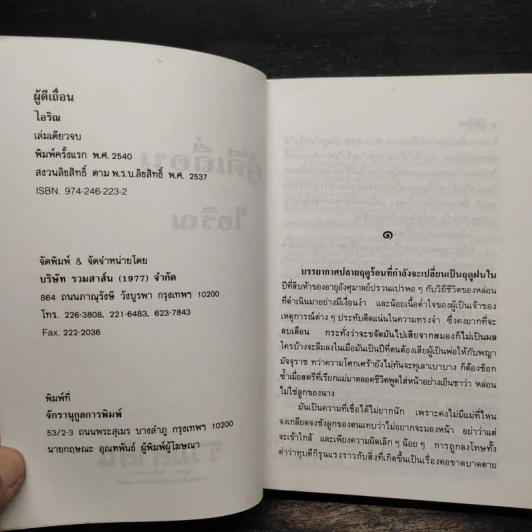 ผู้ดีเถื่อน
ไอริณ
เล่มเดียวจบ
พิมพ์ครั้งแรก พ.ศ. 2540
สงวนลิขสิทธิ์ ตาม พ.ร.บ.ลิขสิทธิ์ พ.ศ. 2537
ISBN. 974-246-223-2
จัดพิมพ์ & จัดจำหน่ายโดย
บริษัท รวมสาส์น (1977) จำกัด
864 ถนนภาณุรังษี วังบูรพา กรุงเทพฯ 10200
โทร. 226-3808, 221-6483, 623-7843
Fax. 222-2036
พิมพ์ที่
จักรานุกูลการพิมพ์
53/2-3 ถนนพระสุเมรุ บางลำภู กรุงเทพฯ 10200
นายกฤษณะ อุณหพันธ์ ผู้พิมพ์ผู้โฆษณา
๑
บรรยากาศปลายฤดูร้อนที่กำลังจะเปลี่ยนเป็นฤดูฝนใน
ปีที่สิบห้าของอายุอังศุมาลย์ปรวนแปรพอ ๆ กับวิถีชีวิตของหล่อน
ที่ดำเนินมาอย่างมีเงื่อนงำ และน้อยเนื้อต่ำใจของผู้เป็นเจ้าของ
เหตุการณ์ต่าง ๆ ประทับติดแน่นในความทรงจำ ซึ่งคงยากที่จะ
ลบเลือน กระทั่งว่าจะขจัดมันไปเสียจากสมองก็ไม่เป็นผล
ใครบ้างจะลืมลงในเมื่อมันเป็นปีที่ตนต้องเสียผู้เป็นพ่อให้กับพญา
มัจจุราช ทว่าความโศกเศร้ายังไม่ทันจะทุเลาเบาบาง ก็ต้องช้อก
ซ้ำเมื่อสตรีที่เรียกแม่มาตลอดชีวิตพูดใส่หน้าอย่างเย็นชาว่า หล่อน
ไม่ใช่ลูกของนาง
มันเป็นความที่เชื่อได้ไม่ยากนัก เพราะคงไม่มีแม่ที่ไหน
จงเกลียดจงชังลูกของตนแทบว่าไม่อยากจะมองหน้า อย่าว่าแต่
จะเข้าใกล้ และเพียงความผิดเล็ก ๆ น้อย ๆ การถูกลงโทษทั้ง
คำว่าทุบตีก็รุนแรงราวกับสิ่งที่เกิดขึ้นเป็นเรื่องคอขาดบาดตาย